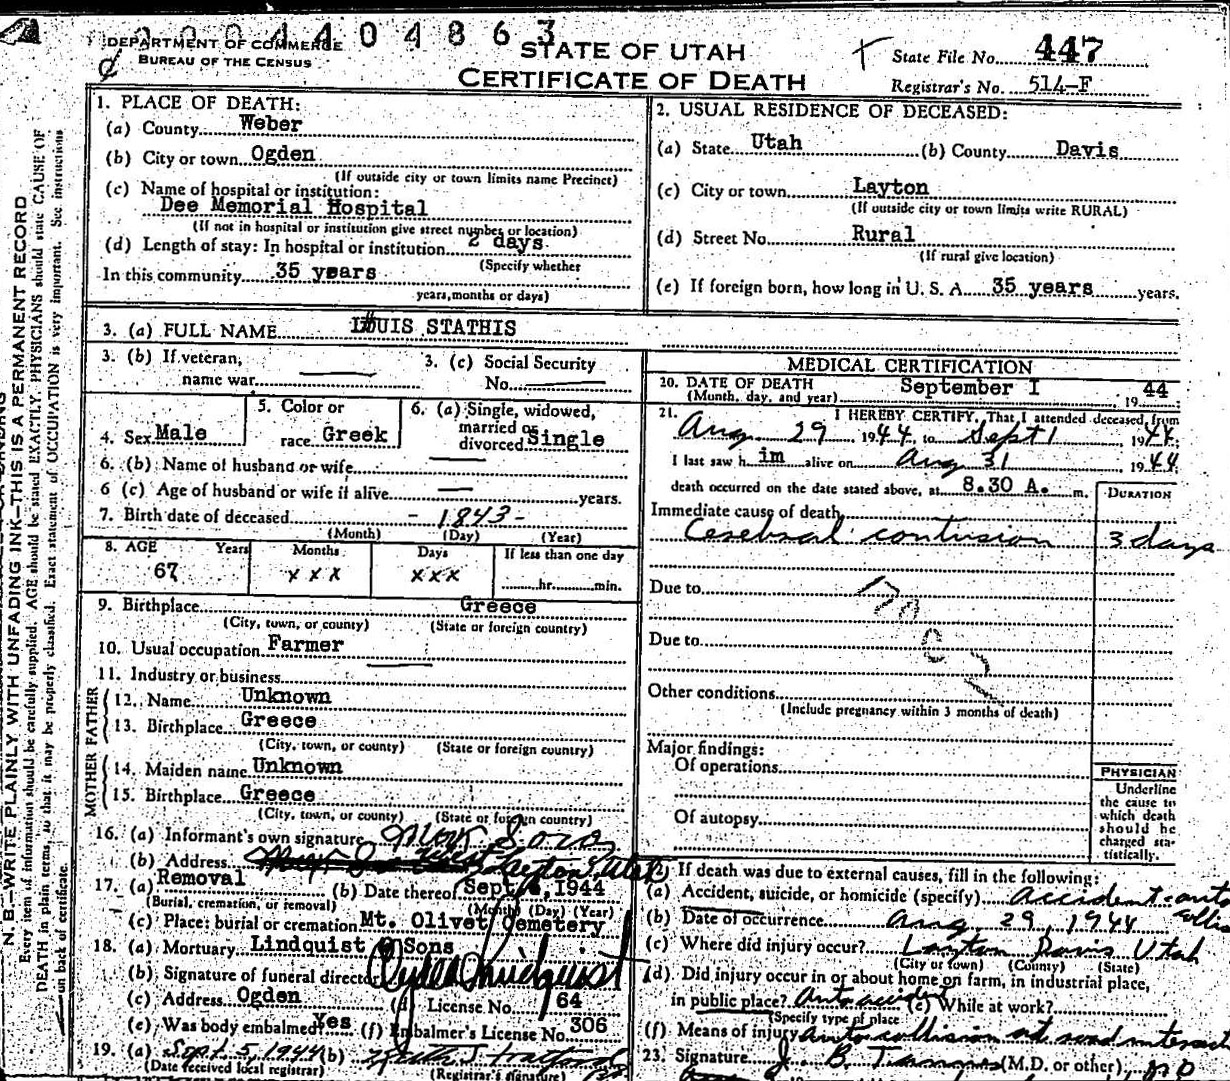 0004404863
DEPARTMENT OF COMMERCE
BUREAU OF THE CENSUS
STATE OF UTAH
CERTIFICATE OF DEATH
State File No. 447
Registrar's No. 514-F
N. B.—WRITE PLAINLY WITH UNFADING INK—THIS IS A PERMANENT RECORD
Every item of information should be carefully supplied. AGE should be stated EXACTLY. PHYSICIANS should state CAUSE OF
DEATH in plain terms, so that it may be properly classified. Exact statement of OCCUPATION is very important. See instructions
on back of certificate.
1. PLACE OF DEATH:
(a) County Weber
(b) City or town Ogden
(If outside city or town limits name Precinct)
(c) Name of hospital or institution:
Dee Memorial Hospital
(If not in hospital or institution give street number or location)
(d) Length of stay: In hospital or institution 2 days
(Specify whether
In this community 35 years
years, months or days)
2. USUAL RESIDENCE OF DECEASED:
(a) State Utah (b) County Davis
(c) City or town Layton
(If outside city or town limits write RURAL)
(d) Street No. Rural
(If rural give location)
(e) If foreign born, how long in U. S. A. 35 years years.
3. (a) FULL NAME LOUIS STATHIS
3. (b) If veteran, name war
3. (c) Social Security No.
4. Sex Male
5. Color or race Greek
6. (a) Single, widowed, married or divorced Single
6. (b) Name of husband or wife
6 (c) Age of husband or wife if alive years.
7. Birth date of deceased - 1843 -
(Month) (Day) (Year)
8. AGE Years Months Days If less than one day
67 x x x xxx hr. min.
9. Birthplace Greece
(City, town, or county) (State or foreign country)
10. Usual occupation Farmer
11. Industry or business
FATHER
12. Name Unknown
13. Birthplace Greece
(City, town, or county) (State or foreign country)
MOTHER
14. Maiden name Unknown
15. Birthplace Greece
(City, town, or county) (State or foreign country)
16. (a) Informant's own signature
(b) Address Layton, Utah
17. (a) Removal (b) Date thereof Sept , 1944
(Burial, cremation, or removal) (Month) (Day) (Year)
(c) Place: burial or cremation Mt. Olivet Cemetery
18. (a) Mortuary Lindquist & Sons
(b) Signature of funeral director Clyde Lindquist
(c) Address Ogden (d) License No. 64
(e) Was body embalmed Yes (f) Embalmer's License No. 306
19. (a) Sept. 5, 1944 (b)
(Date received local registrar) (Registrar's signature)
MEDICAL CERTIFICATION
20. DATE OF DEATH September I 1944
(Month, day, and year)
21. I HEREBY CERTIFY, That I attended deceased from
Aug 29 1944, to Sept 1 1944;
I last saw him alive on Aug 31 1944
death occurred on the date stated above, at 8.30 A. m.
DURATION
Immediate cause of death
Cerebral contusion 3 days
Due to
Due to
Other conditions
(Include pregnancy within 3 months of death)
Major findings:
Of operations
Of autopsy
PHYSICIAN
Underline
the cause to
which death
should be
charged sta-
tistically.
22. If death was due to external causes, fill in the following:
(a) Accident, suicide, or homicide (specify) Accident - auto
(b) Date of occurrence Aug 29, 1944
(c) Where did injury occur? Layton Davis Utah
(City or town) (County) (State)
(d) Did injury occur in or about home on farm, in industrial place,
in public place? (e) While at work?
(Specify type of place
(f) Means of injury Auto collision at road
23. Signature J. B. (M.D. or other) MD